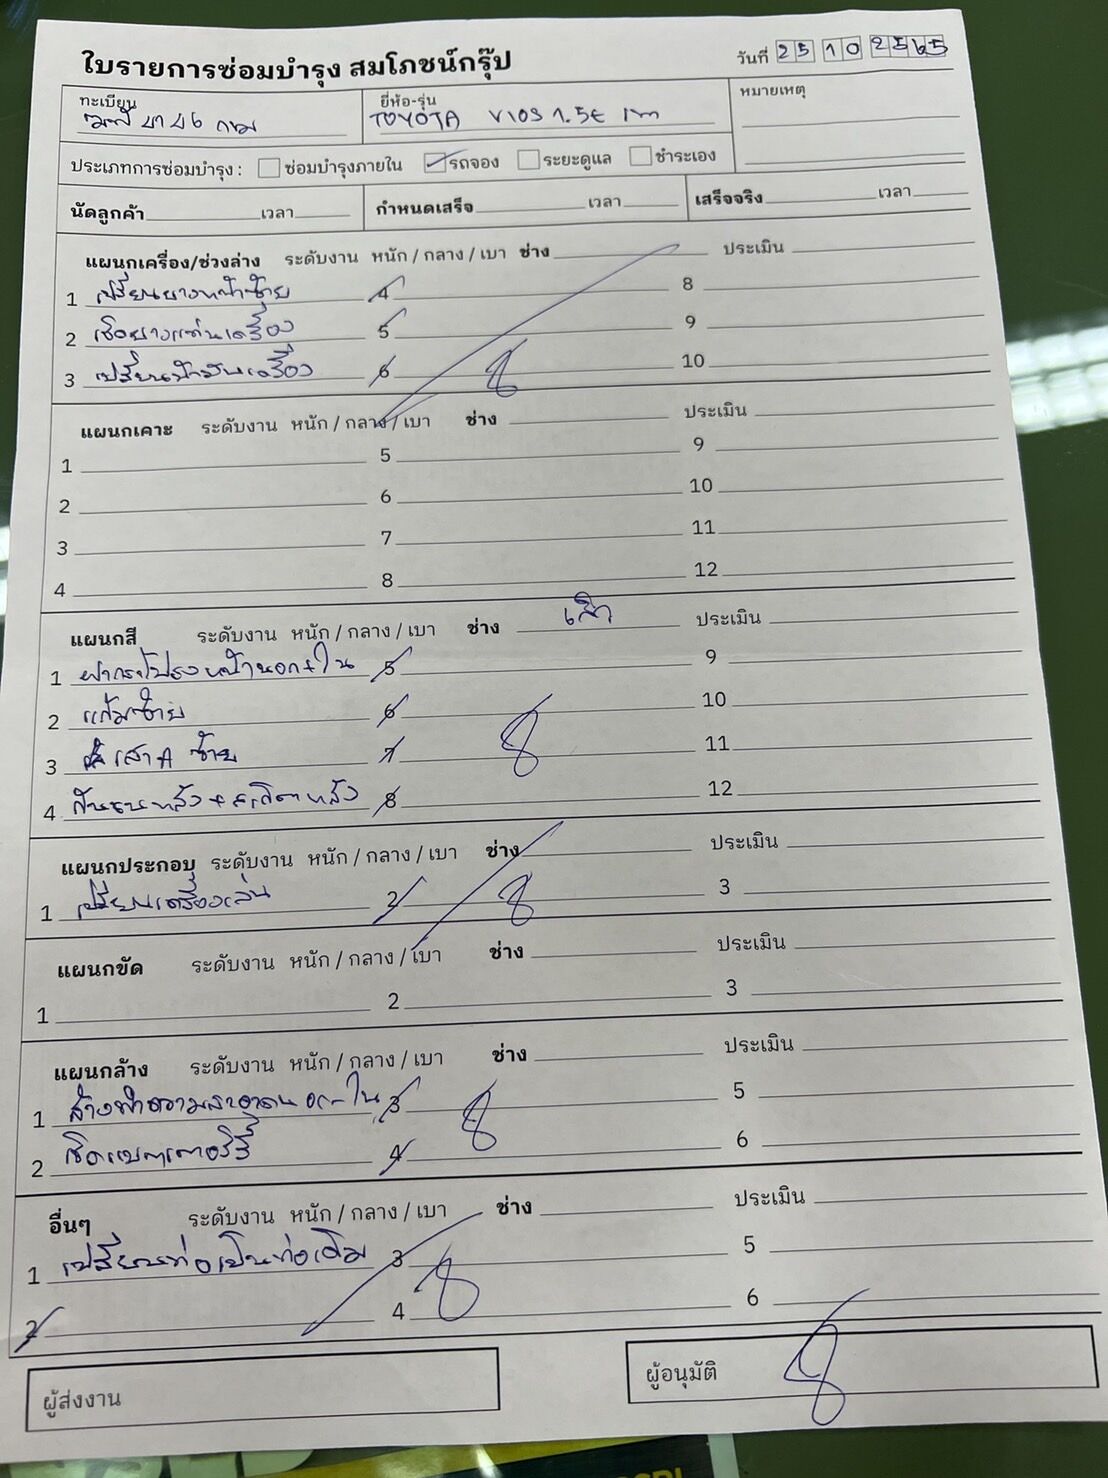 ใบรายการซ่อมบำรุง สมโภชน์กรุ๊ป
วันที่ 25 10 2565
ทะเบียน
กทม
ยี่ห้อ-รุ่น
TOYOTA VIOS 1.5E
หมายเหตุ
ประเภทการซ่อมบำรุง : ซ่อมบำรุงภายใน รถจอง ระยะดูแล ชำระเอง
นัดลูกค้า เวลา กำหนดเสร็จ เวลา เสร็จจริง เวลา
แผนกเครื่อง/ช่วงล่าง ระดับงาน หนัก / กลาง / เบา ช่าง ประเมิน
1 เปลี่ยนยางหน้าซ้าย 4 8
2 เช็คยางแท่นเครื่อง 5 9
3 เปลี่ยนน้ำมันเครื่อง 6 10
แผนกเคาะ ระดับงาน หนัก / กลาง / เบา ช่าง ประเมิน
1 5 9
2 6 10
3 7 11
4 8 12
แผนกสี ระดับงาน หนัก / กลาง / เบา ช่าง ประเมิน
1 ฝากระโปรงหน้านอก+ใน 5 9
2 แก้มซ้าย 6 10
3 เสา A ซ้าย 7 11
4 กันชนหลัง + สเกิตหลัง 8 12
แผนกประกอบ ระดับงาน หนัก / กลาง / เบา ช่าง ประเมิน
1 เปลี่ยนเครื่องเล่น 2 3
แผนกขัด ระดับงาน หนัก / กลาง / เบา ช่าง ประเมิน
1 2 3
แผนกล้าง ระดับงาน หนัก / กลาง / เบา ช่าง ประเมิน
1 ล้างทำความสะอาดนอก-ใน 3 5
2 เช็คแบตเตอร์รี่ 4 6
อื่นๆ ระดับงาน หนัก / กลาง / เบา ช่าง ประเมิน
1 เปลี่ยนท่อเป็นท่อเดิม 3 5
2 4 6
ผู้ส่งงาน ผู้อนุมัติ